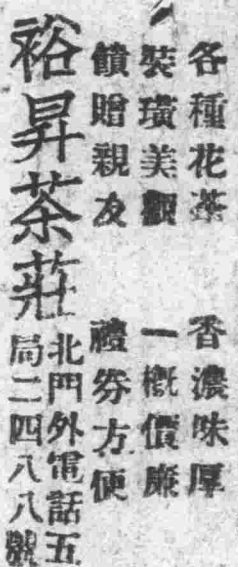 各種花茶　香濃味厚
裝璜美觀　一概價廉
饋贈親友　禮券方便
裕昇茶莊
北門外電話五
局二四八八號